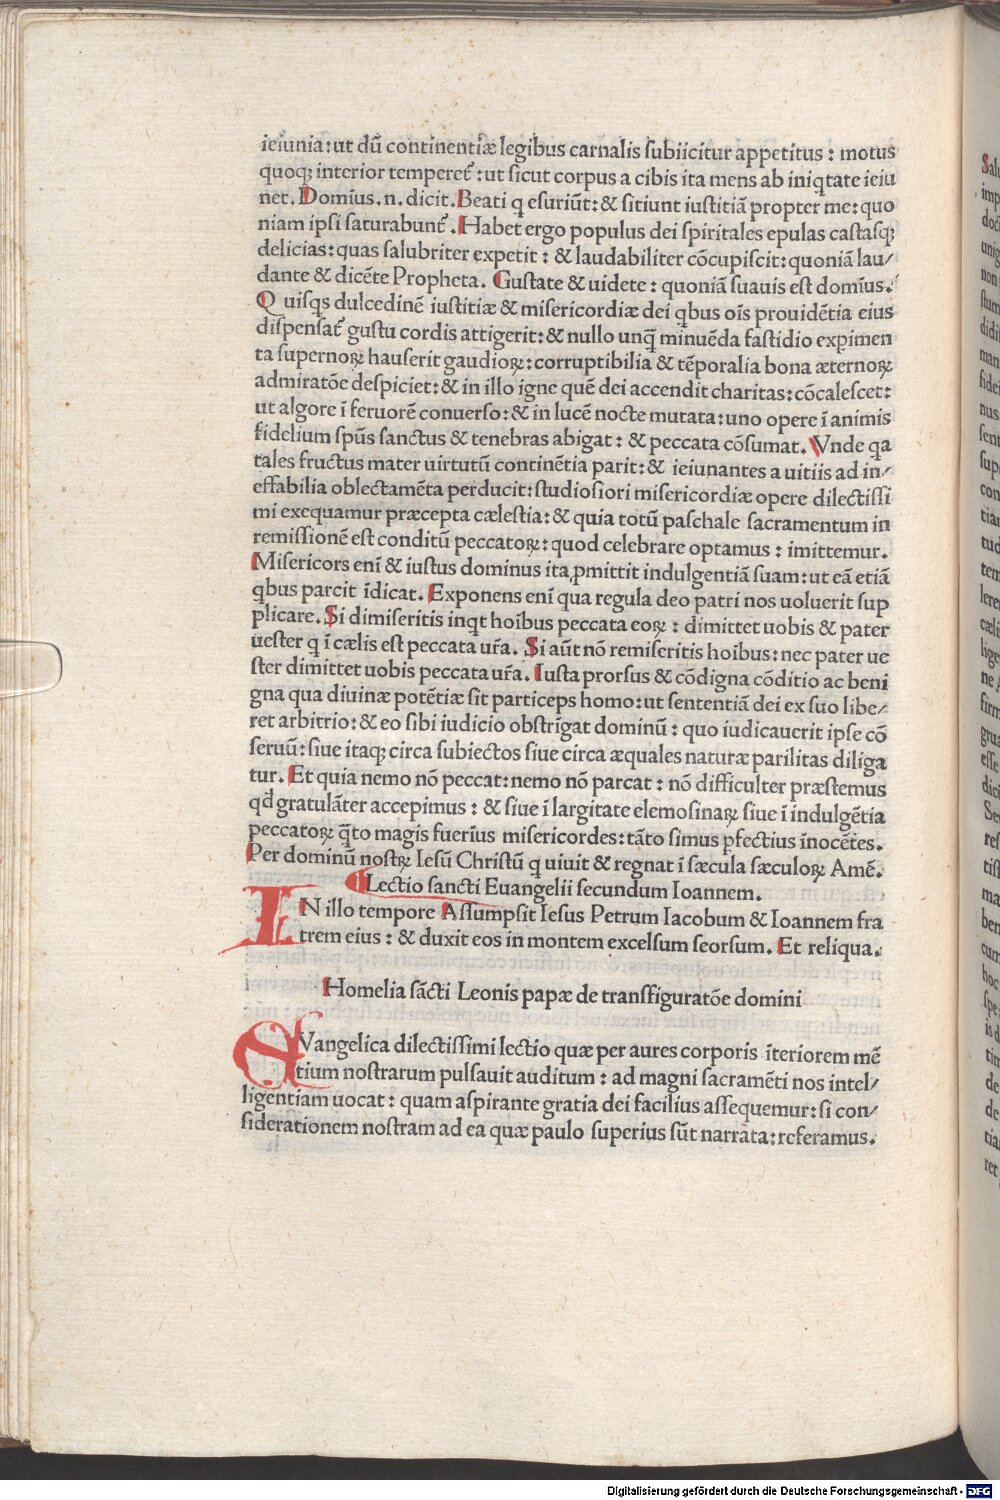 ieiunia: ut dū continentiæ legibus carnalis subiicitur appetitus: motus
quoqꝫ interior temperet᷑: ut sicut corpus a cibis ita mens ab iniqtate ieiu
net. Domīus .n. dicit. Beati q esuriūt: & sitiunt iustitiā propter me: quo
niam ipsi saturabunt᷑. Habet ergo populus dei spiritales epulas castasqꝫ
delicias: quas salubriter expetit: & laudabiliter cōcupiscit: quoniā lau/
dante & dicēte Propheta. Gustate & uidete: quoniā suauis est domīus.
Quisqs dulcedinē iustitiæ & misericordiæ dei qbus oīs prouidētia eius
dispensat᷑ gustu cordis attigerit: & nullo unq̄ minuēda fastidio expimen
ta supernoꝝ hauserit gaudioꝝ: corruptibilia & tēporalia bona æternoꝝ
admiratōe despiciet: & in illo igne quē dei accendit charitas: cōcalescet:
ut algore ī feruorē conuerso: & in lucē nocte mutata: uno opere ī animis
fidelium spūs sanctus & tenebras abigat: & peccata cōsumat. Vnde qa
tales fructus mater uirtutū continētia parit: & ieiunantes a uitiis ad in/
effabilia oblectamēta perducit: studiosiori misericordiæ opere dilectissi
mi exequamur præcepta cælestia: & quia totū paschale sacramentum in
remissionē est conditū peccatoꝝ: quod celebrare optamus: imittemur.
Misericors enī & iustus dominus ita ꝓmittit indulgentiā suam: ut eā etiā
qbus parcit īdicat. Exponens enī qua regula deo patri nos uoluerit sup
plicare. Si dimiseritis inqt hoībus peccata eoꝝ: dimittet uobis & pater
uester q ī cælis est peccata ur̄a. Si aūt nō remiseritis hoībus: nec pater ue
ster dimittet uobis peccata ur̄a. Iusta prorsus & cōdigna cōditio ac beni
gna qua diuinæ potētiæ sit particeps homo: ut sententiā dei ex suo libe/
ret arbitrio: & eo sibi iudicio obstrīgat dominū: quo iudicauerit ipse cō
seruū: siue itaqꝫ circa subiectos siue circa æquales naturæ parilitas diliga
tur. Et quia nemo nō peccat: nemo nō parcat: nō difficulter præstemus
qd̄ gratulāter accepimus: & siue ī largitate elemosinaꝝ siue ī indulgētia
peccatoꝝ q̄to magis fuerīus misericordes: tāto simus pfectius īnocētes.
Per dominū nostꝝ Iesū Christū q uiuit & regnat ī sæcula sæculoꝝ Amē.
Lectio sancti Euangelii secundum Ioannem.
IN illo tempore Assumpsit Iesus Petrum Iacobum & Ioannem fra
trem eius: & duxit eos in montem excelsum seorsum. Et reliqua.
Homelia sācti Leonis papæ de transfiguratōe domini
EVangelica dilectissimi lectio quæ per aures corporis īteriorem mē
tium nostrarum pulsauit auditum: ad magni sacramēti nos intel/
ligentiam uocat: quam aspirante gratia dei facilius assequemur: si con/
siderationem nostram ad ea quæ paulo superius sūt narrata: referamus.
Digitalisierung gefördert durch die Deutsche Forschungsgemeinschaft - DFG